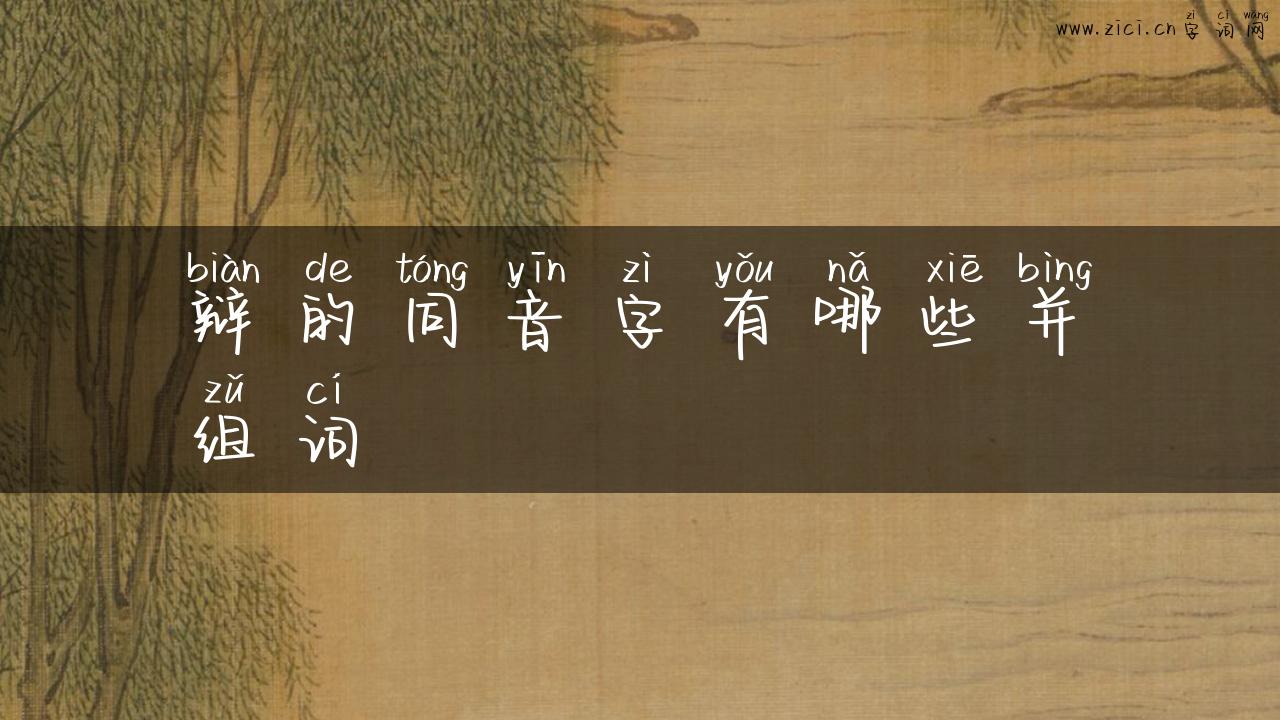 zì cí wǎng
www.zici.cn字词网
biàn de tóng yīn zì yǒu nǎ xiē bìng
辩的同音字有哪些并
zǔ cí
组词